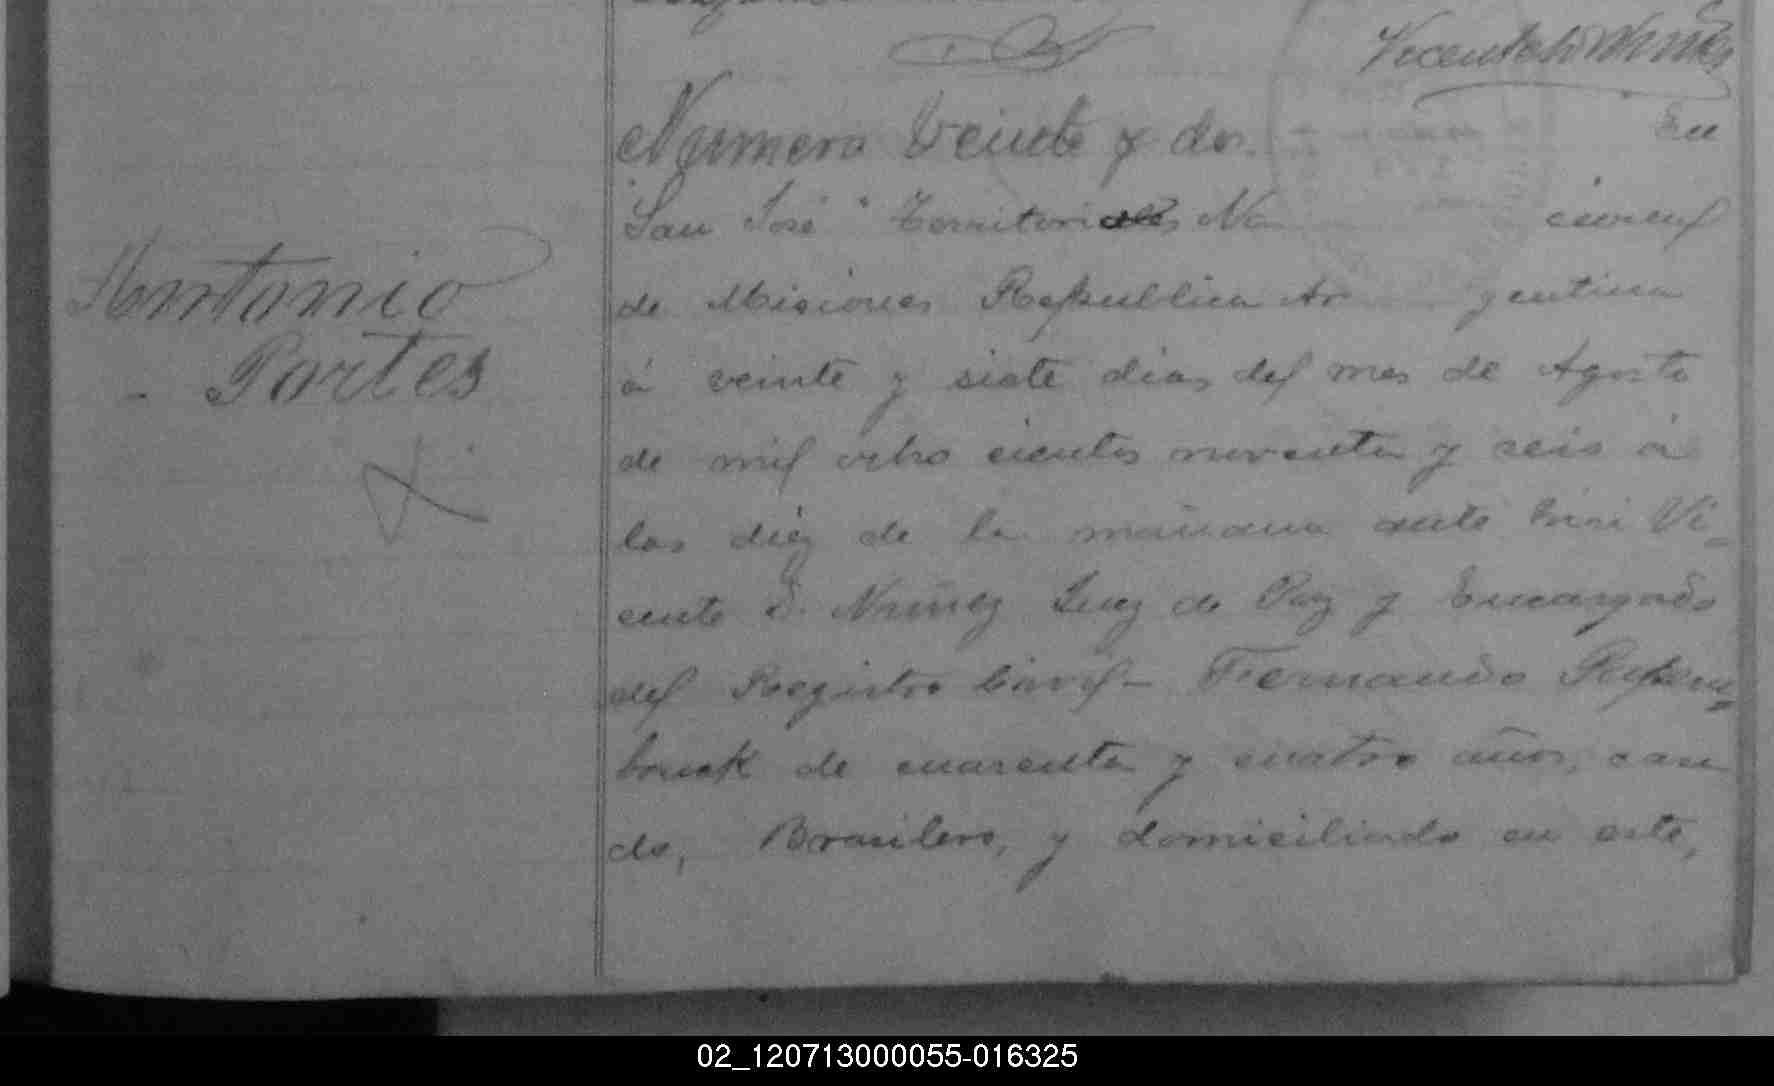 Antonio
Portes
Numero Veinte y dos. En
San José Territorio Na cional
de Misiones Republica Ar gentina
á veinte y siete dias del mes de Agosto
de mil ocho cientos noventa y seis á
las diéz de la mañana ante mi Vi-
cente S. Nuñez Juez de Paz y Encargado
del Registro Civil- Fernando
bruck de cuarenta y cuatro años, casa
do, Brasilero, y domiciliado en este,
02_120713000055-016325